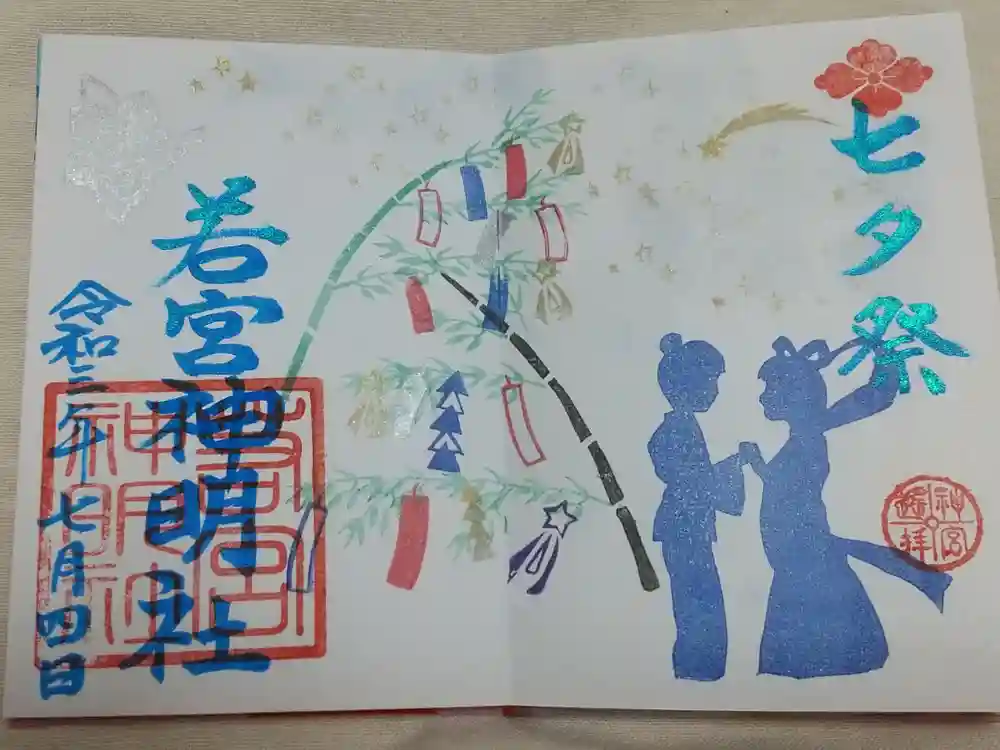 七夕祭
神宮
遙拝
若宮神明社
令和三年七月四日